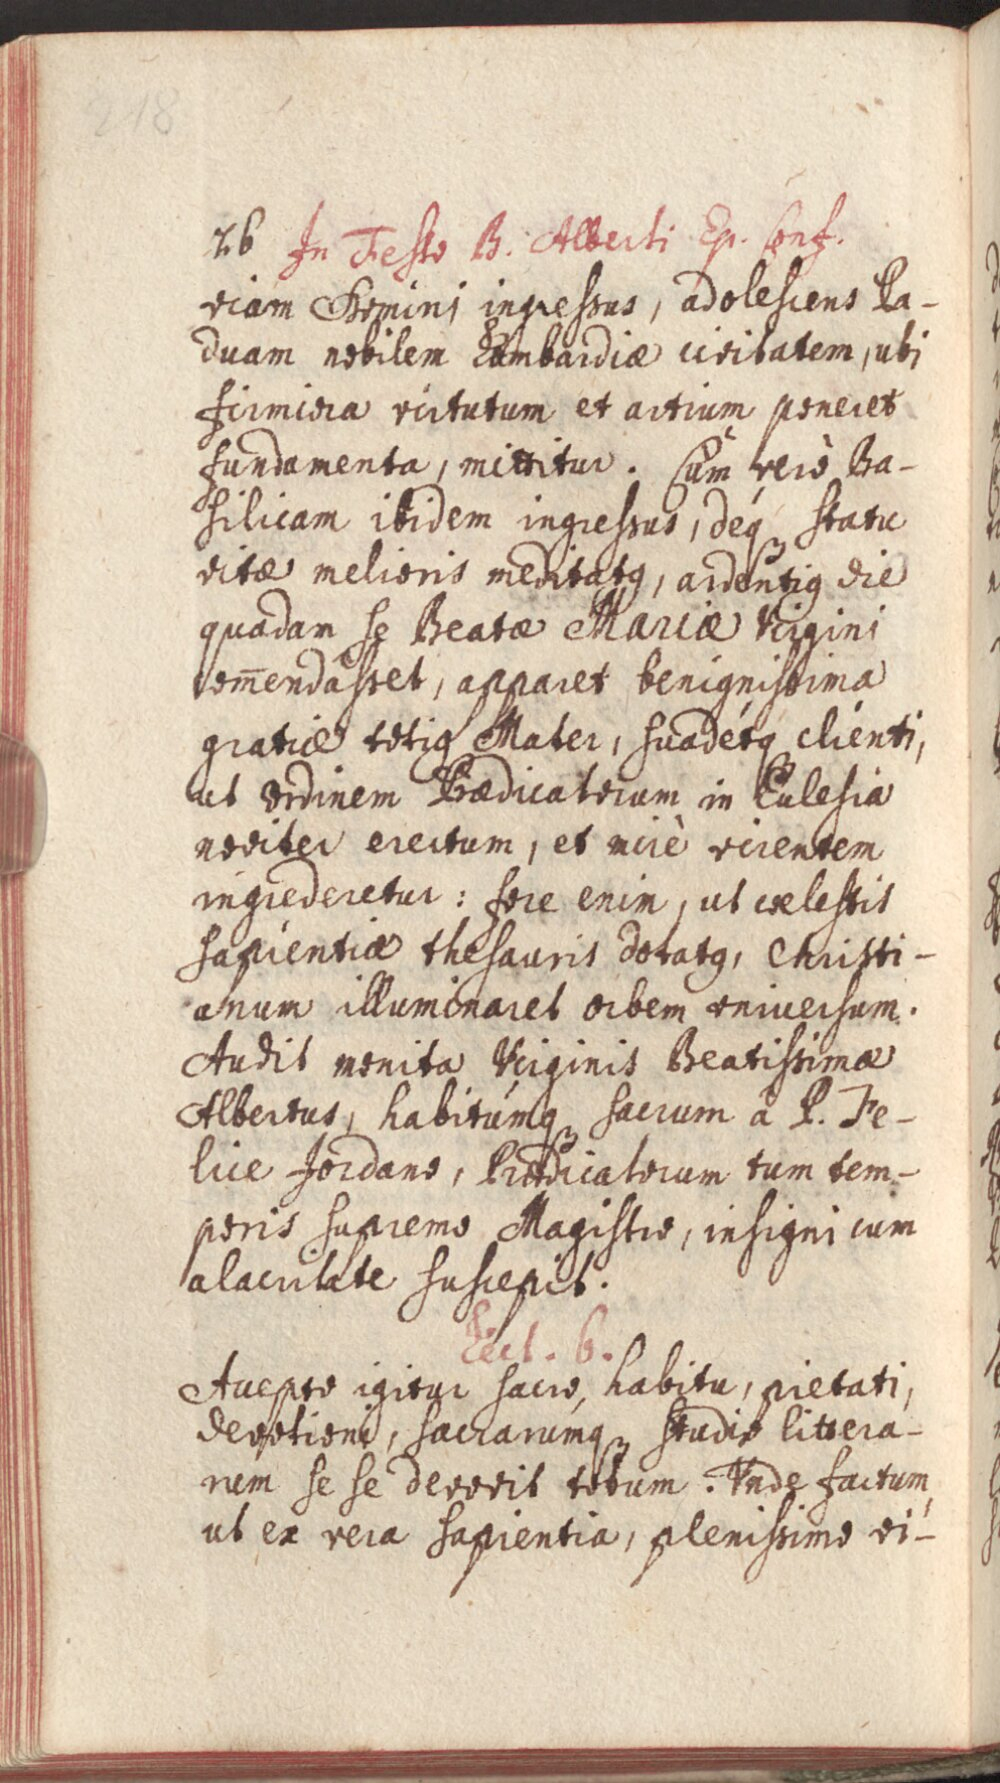 218
26 In Festo B. Alberti Ep. Conf.
viam Domini ingressus, adolescens Pa-
duam nobilem Lombardiæ civitatem, ubi
firmiora virtutum et artium poneret
fundamenta, mittitur. Cùm verò Ba-
silicam ibidem ingressus, déq₃ statu
vitæ melioris meditatꝯ, ardentiꝯ die
quadam se Beatæ Mariæ Virgini
com̄endâsset, apparet benignissima
gratiæ totiꝯ Mater, suadétq₃ clienti,
ut Ordinem Prædicatorum in Ecclesia
noviter erectum, et mirè virentem
ingrederetur: fore enim, ut cœlestis
sapientiæ thesauris dotatꝯ, Christi-
anum illuminaret orbem universum.
Audit monita Virginis Beatissimæ
Albertus, habitúmq₃ sacrum à P. Fe-
lice Jordano, Prædicatorum tum tem-
poris supremo Magistro, insigni cum
alacritate suscepit.
Lect. 6.
Accepto igitur sacro habitu, pietati,
devotioni, sacrarúmq₃ studio littera-
rum se se devovit totum. Unde factum,
ut ex vera sapientia, plenissimo vi-